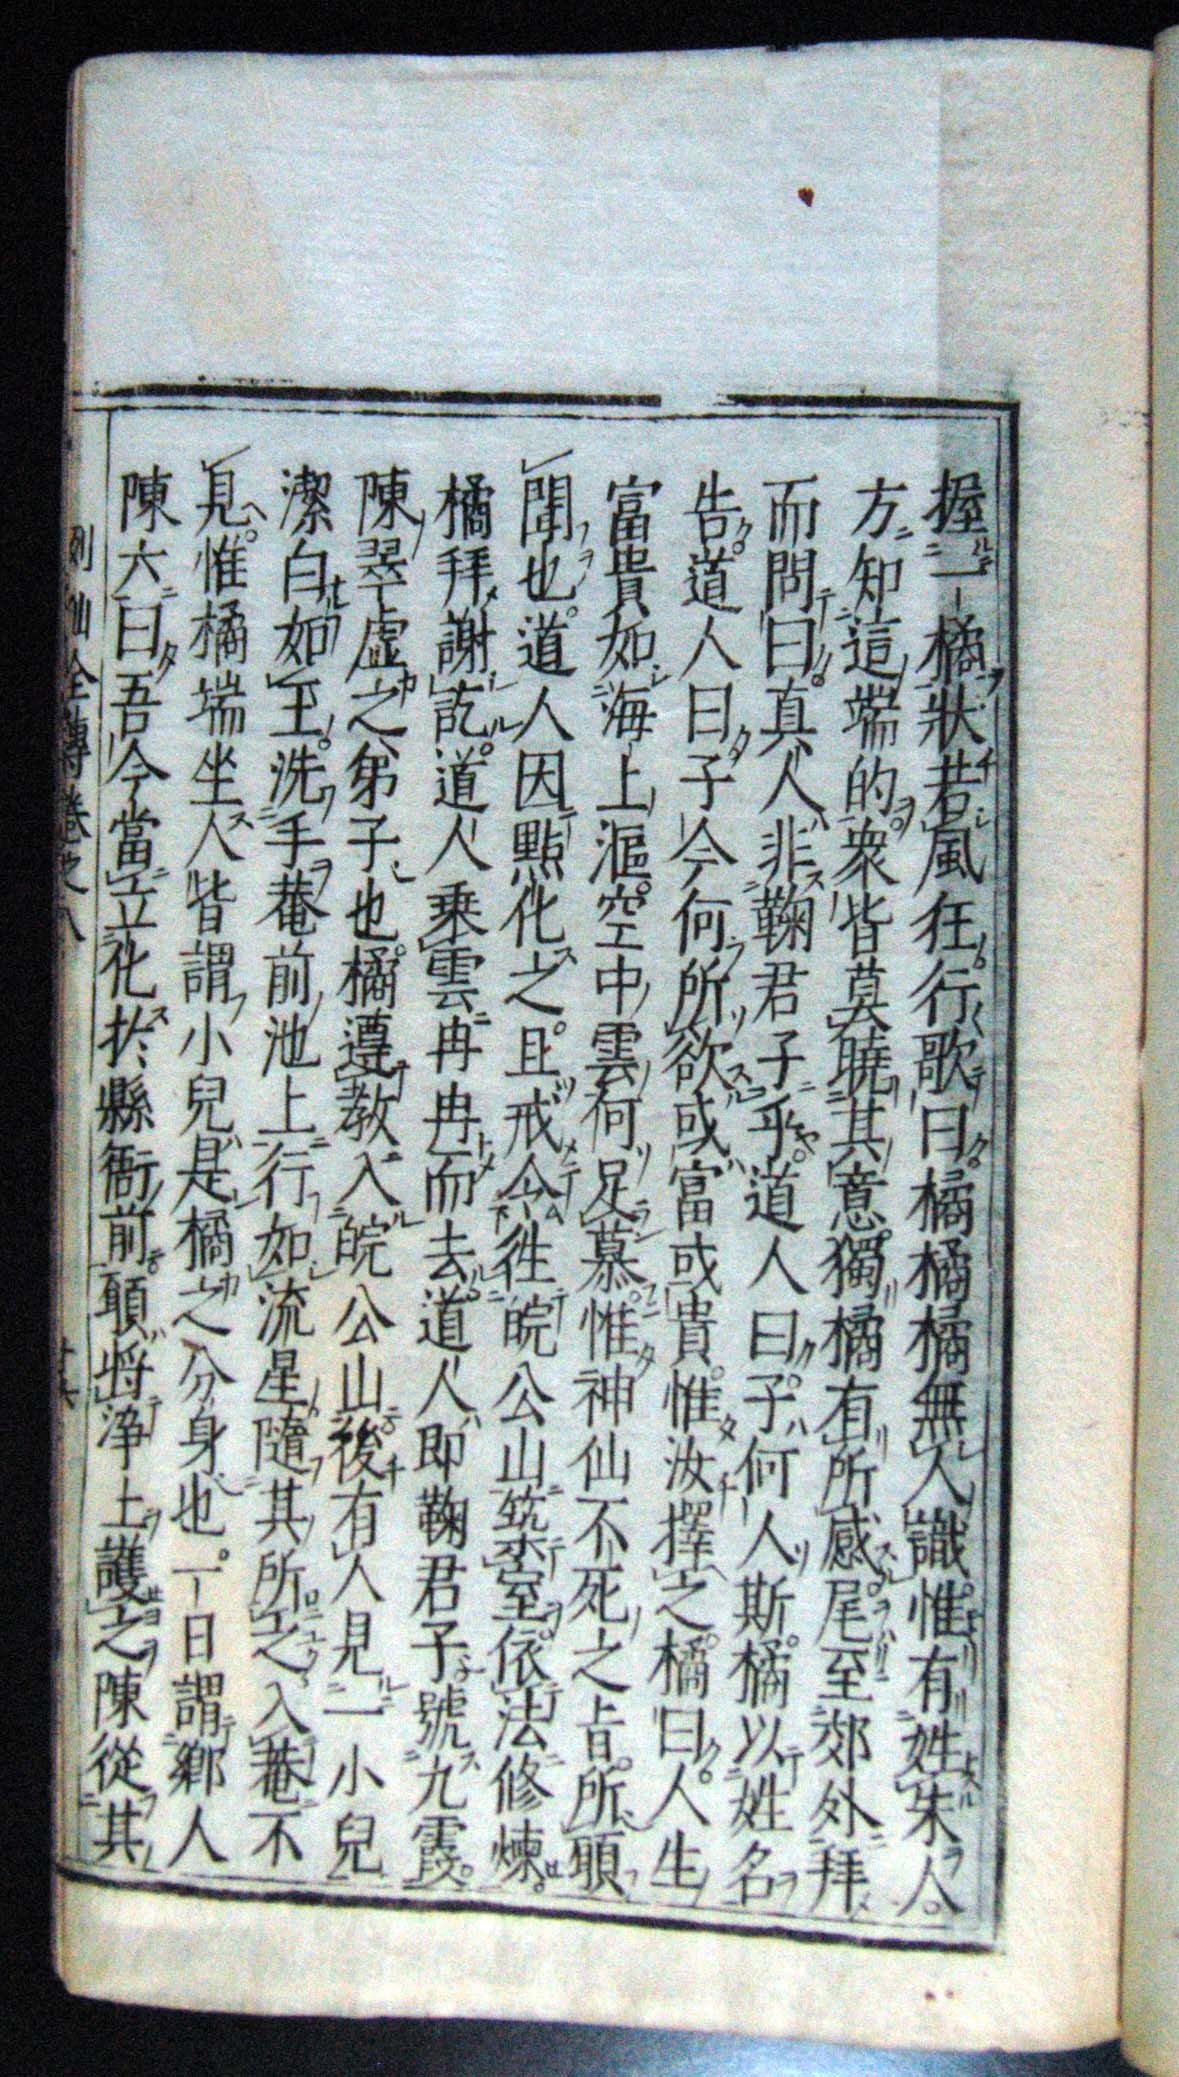 握一橘狀若風狂行歌曰橘橘橘無人識惟有姓朱人
方知這端的衆皆莫曉其意獨橘有所感尾至郊外拜
而問曰真人非鞠君子乎道人曰子何人斯橘以姓名
告道人曰子今何所欲或富或貴惟汝擇之橘曰人生
富貴如海上漚空中雲何足慕惟神仙不死之旨所願
聞也道人因點化之且戒令徃皖公山筑室依法修煉
橘拜謝訖道人乘雲冉冉而去道人即鞠君子號九霞
陳翠虛之弟子也橘遵教入皖公山後有人見一小兒
潔白如玉洗手菴前池上行如流星隨其所之入菴不
見惟橘端坐人皆謂小兒是橘之分身也一日謂鄉人
陳六曰吾今當立化於縣衙前願將淨土護之陳從其
列仙全傳卷之八